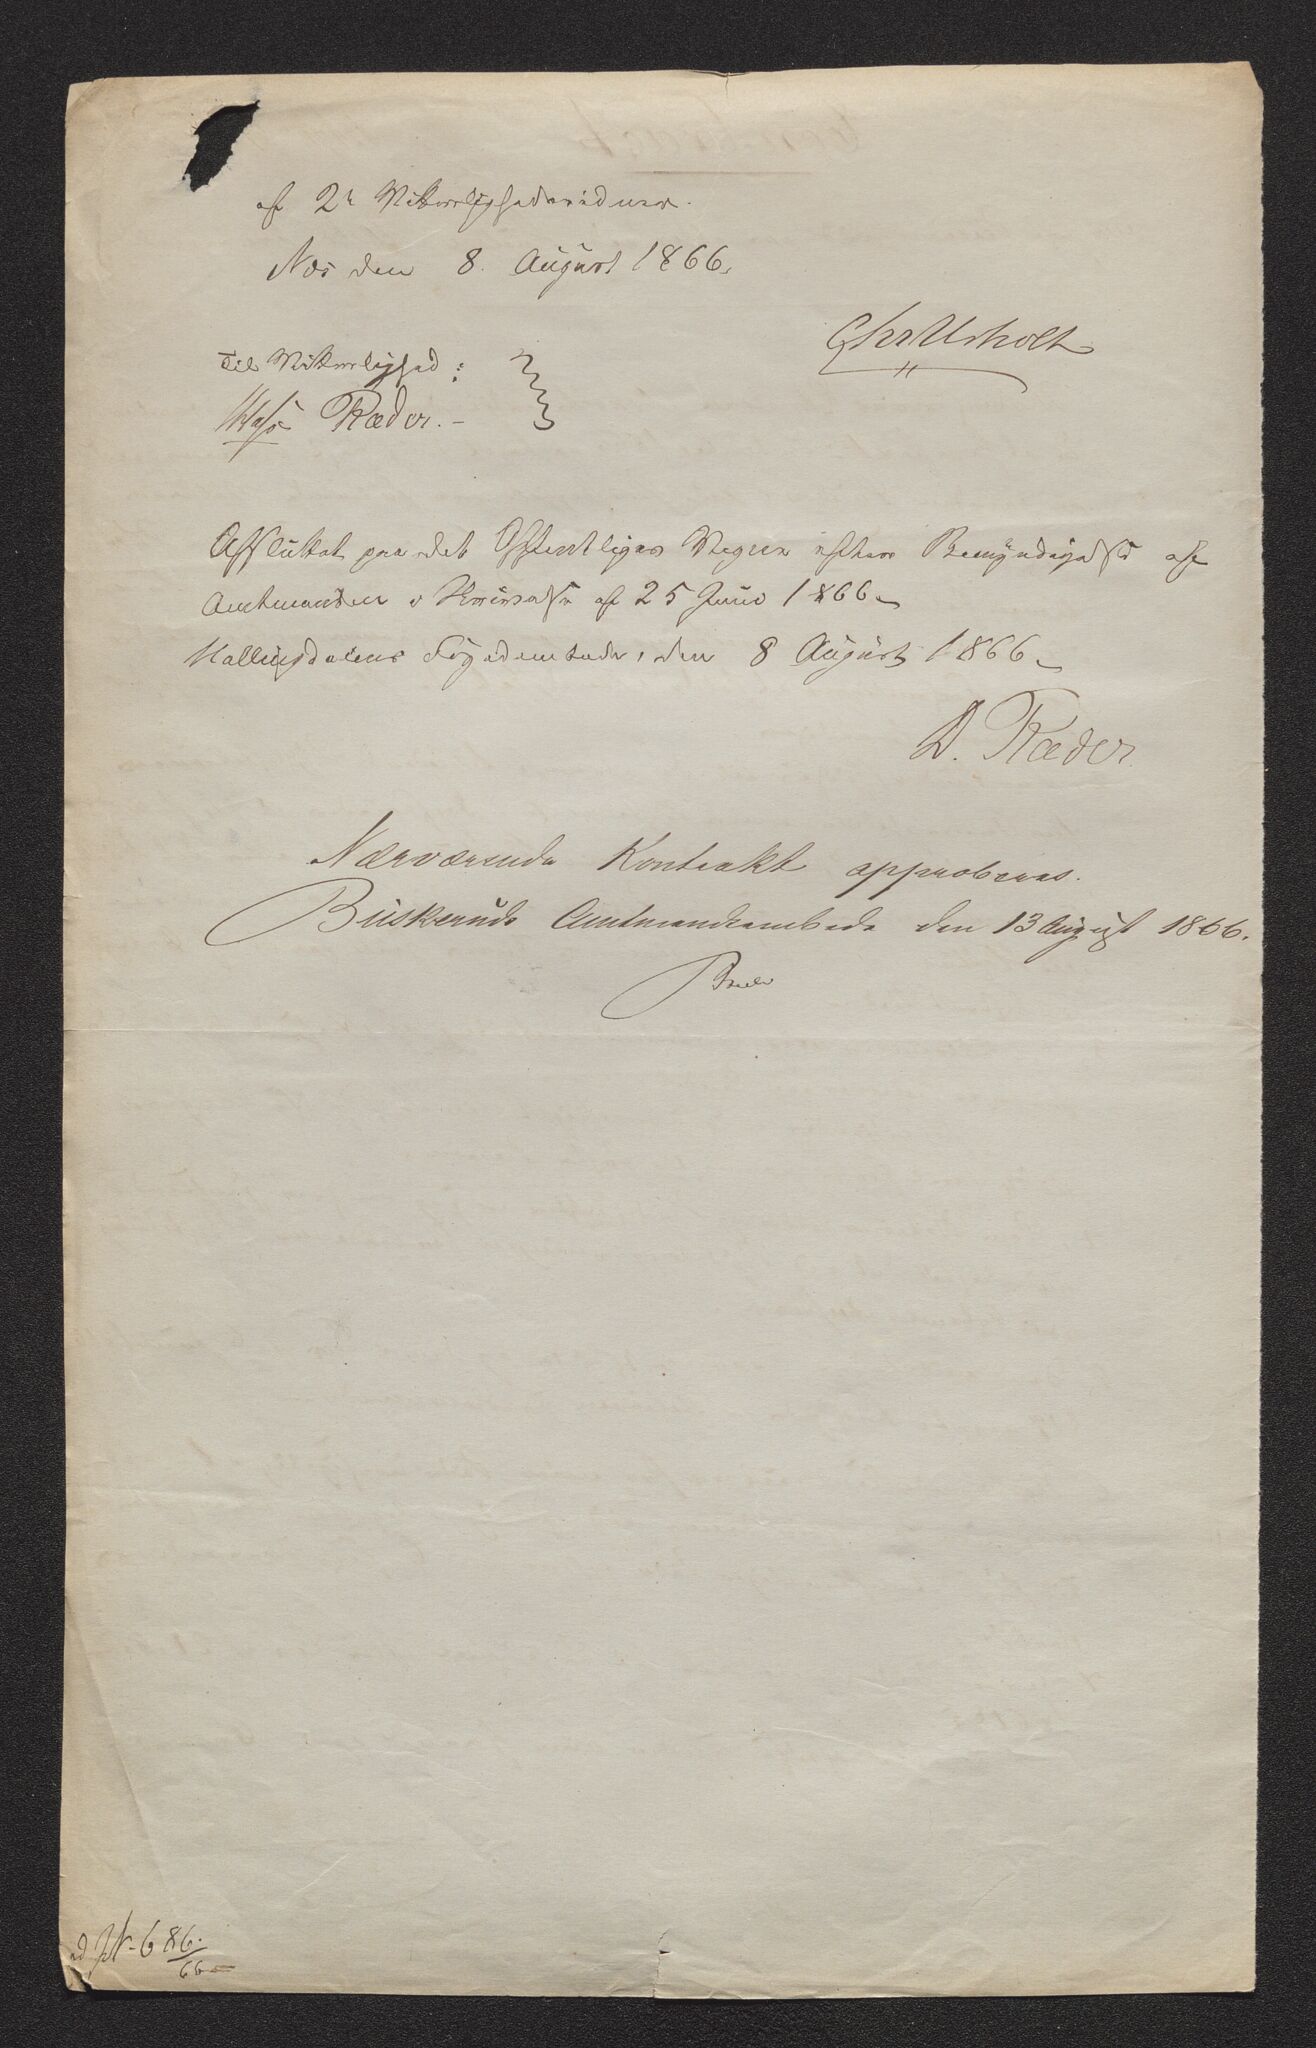 af 2de Vitterlighedsvidner.
Næs den 8. August 1866.
Chr Usholt
Til Vitterlighed:
Ræder.-
Afsluttet paa det Offentliges Vegne efter Bemyndigelse af
Amtmanden i Skrivelse af 25 Juni 1866
Hallingdalens Fogedembede, den 8 August 1866
D. Ræder.
Nærværende Kontrakt approberes.
Buskeruds Amtmandsembede den 13 August 1866.
ad JN- 686./66